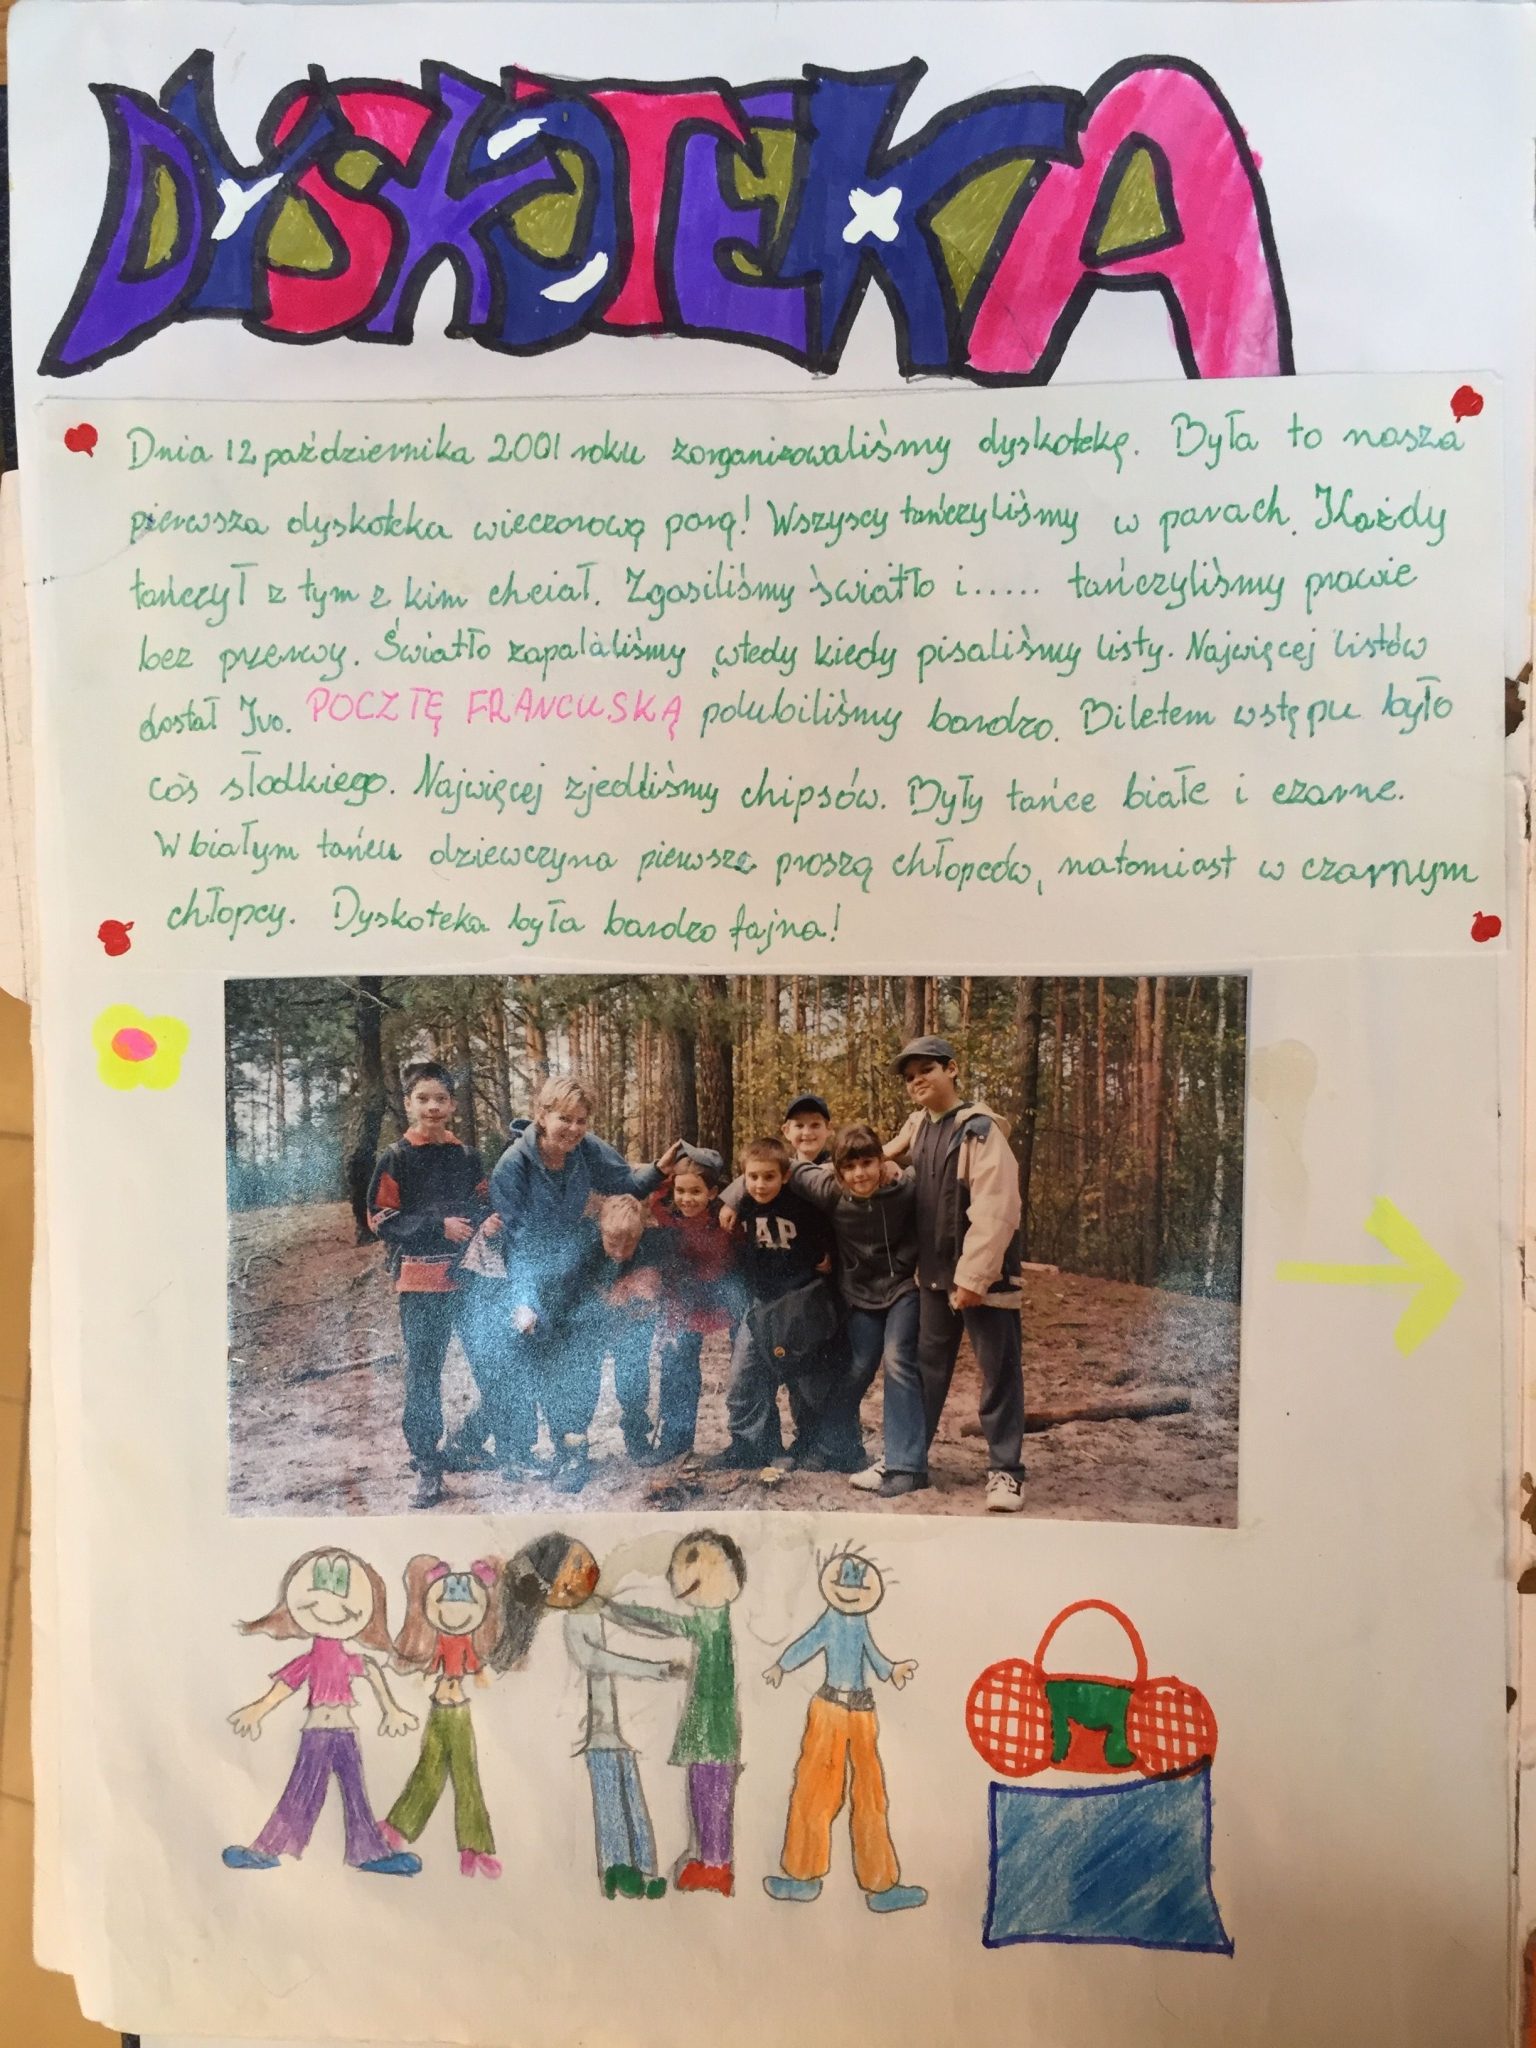 DYSKOTEKA
Dnia 12 października 2001 roku zorganizowaliśmy dyskotekę. Była to nasza
pierwsza dyskoteka wieczorową porą! Wszyscy tańczyliśmy w parach. Każdy
tańczył z tym z kim chciał. Zgasiliśmy światło i..... tańczyliśmy prawie
bez przerwy. Światło zapalaliśmy wtedy kiedy pisaliśmy listy. Najwięcej listów
dostał Ivo. POCZTĘ FRANCUSKĄ polubiliśmy bardzo. Biletem wstępu było
coś słodkiego. Najwięcej zjedliśmy chipsów. Były tańce białe i czarne.
W białym tańcu dziewczyna pierwsza proszą chłopców, natomiast w czarnym
chłopcy. Dyskoteka była bardzo fajna!
AP